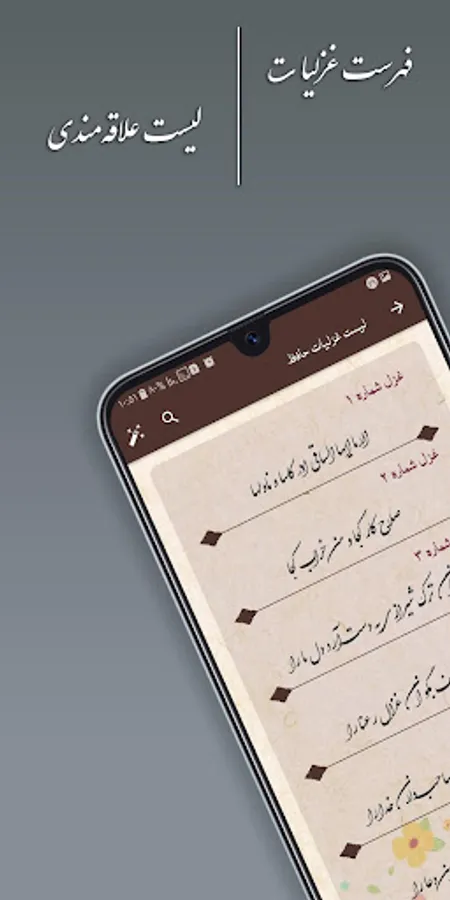 فهرست غزلیات
لیست علاقه مندی
۱۰:۵۱
لیست غزلیات حافظ
غزل شماره ۱
الا یا ایها الساقی ادر کاسا و ناولها
غزل شماره ۲
صلاح کار کجا و من خراب کجا
شماره ۳
ترک شیرازی به دست آرد دل ما را
بگو آن غزال رعنا را
صاحب دلان خدا را